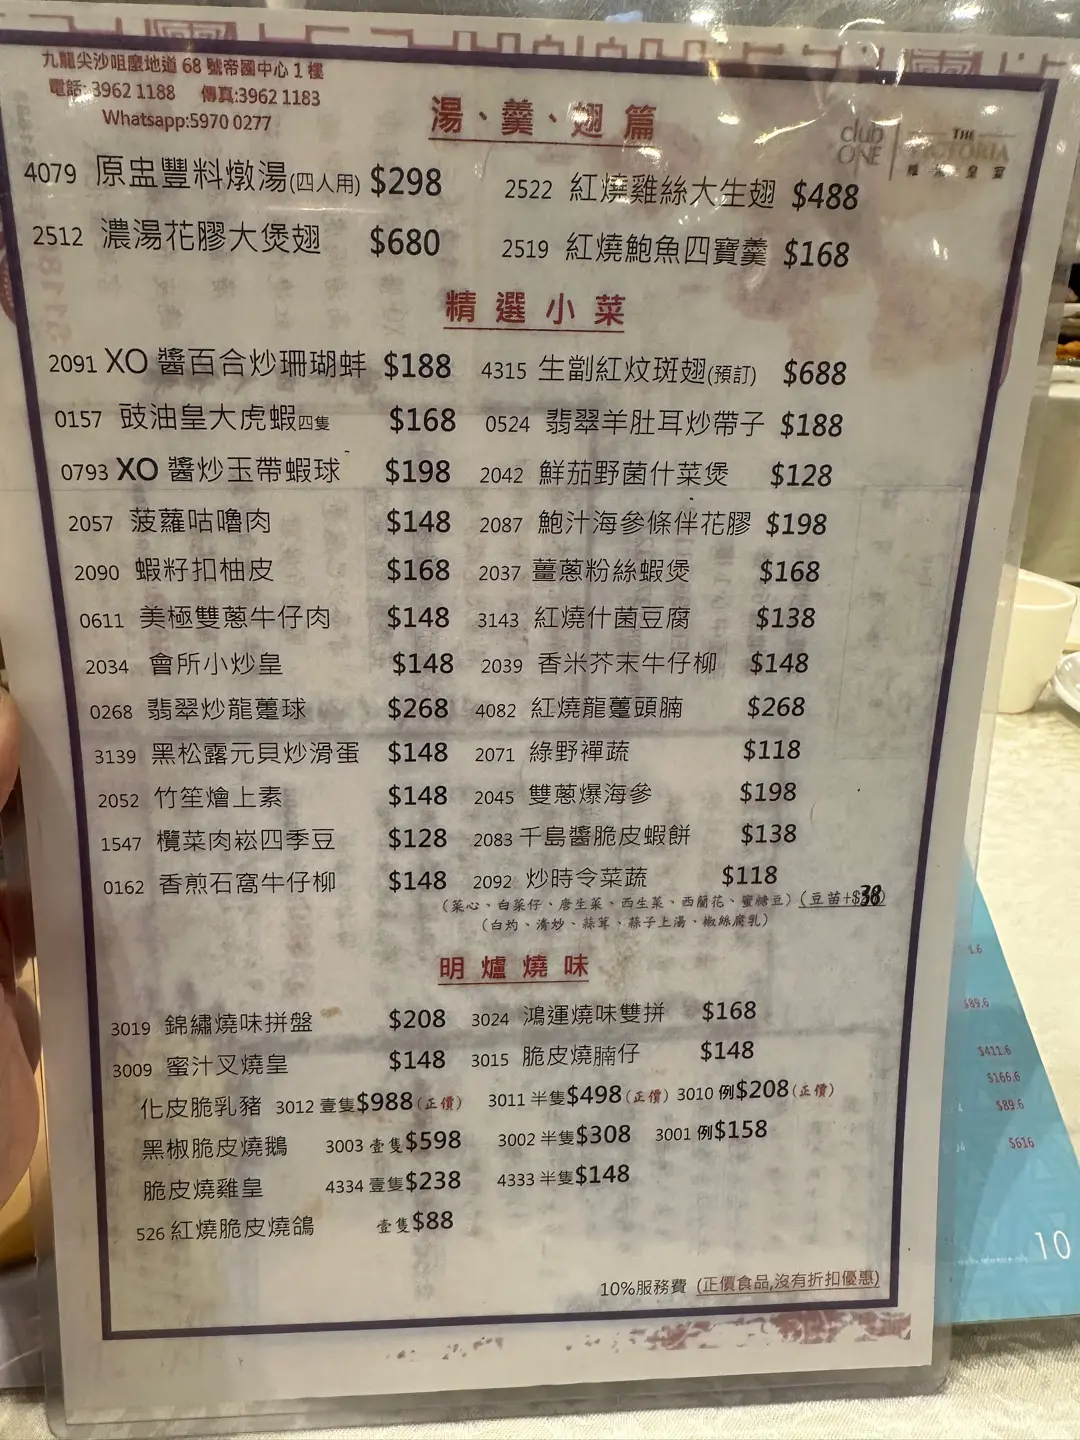 九龍尖沙咀麼地道 68 號帝國中心 1 樓
電話: 3962 1188 傳真:3962 1183
Whatsapp:5970 0277
club ONE THE VICTORIA
湯、羹、翅篇
4079 原盅豐料燉湯(四人用) $298 2522 紅燒雞絲大生翅 $488
2512 濃湯花膠大煲翅 $680 2519 紅燒鮑魚四寶羹 $168
精選小菜
2091 XO 醬百合炒珊瑚蚌 $188 4315 生劏紅炆斑翅(預訂) $688
0157 豉油皇大虎蝦四隻 $168 0524 翡翠羊肚耳炒帶子 $188
0793 XO 醬炒玉帶蝦球 $198 2042 鮮茄野菌什菜煲 $128
2057 菠蘿咕嚕肉 $148 2087 鮑汁海參條伴花膠 $198
2090 蝦籽扣柚皮 $168 2037 薑蔥粉絲蝦煲 $168
0611 美極雙蔥牛仔肉 $148 3143 紅燒什菌豆腐 $138
2034 會所小炒皇 $148 2039 香米芥末牛仔柳 $148
0268 翡翠炒龍躉球 $268 4082 紅燒龍躉頭腩 $268
3139 黑松露元貝炒滑蛋 $148 2071 綠野襌蔬 $118
2052 竹笙燴上素 $148 2045 雙蔥爆海參 $198
1547 欖菜肉崧四季豆 $128 2083 千島醬脆皮蝦餅 $138
0162 香煎石窩牛仔柳 $148 2092 炒時令菜蔬 $118
(菜心、白菜仔、唐生菜、西生菜、西蘭花、蜜糖豆) (豆苗+$38)
(白灼、清炒、蒜茸、蒜子上湯、椒絲腐乳)
明爐燒味
3019 錦繡燒味拼盤 $208 3024 鴻運燒味雙拼 $168
3009 蜜汁叉燒皇 $148 3015 脆皮燒腩仔 $148
化皮脆乳豬 3012 壹隻$988(正價) 3011 半隻$498(正價) 3010 例$208(正價)
黑椒脆皮燒鵝 3003 壹隻$598 3002 半隻$308 3001 例$158
脆皮燒雞皇 4334 壹隻$238 4333 半隻$148
526 紅燒脆皮燒鴿 壹隻$88
10%服務費 (正價食品,沒有折扣優惠)
$89.6
$411.6
$166.6
$89.6
$616
10